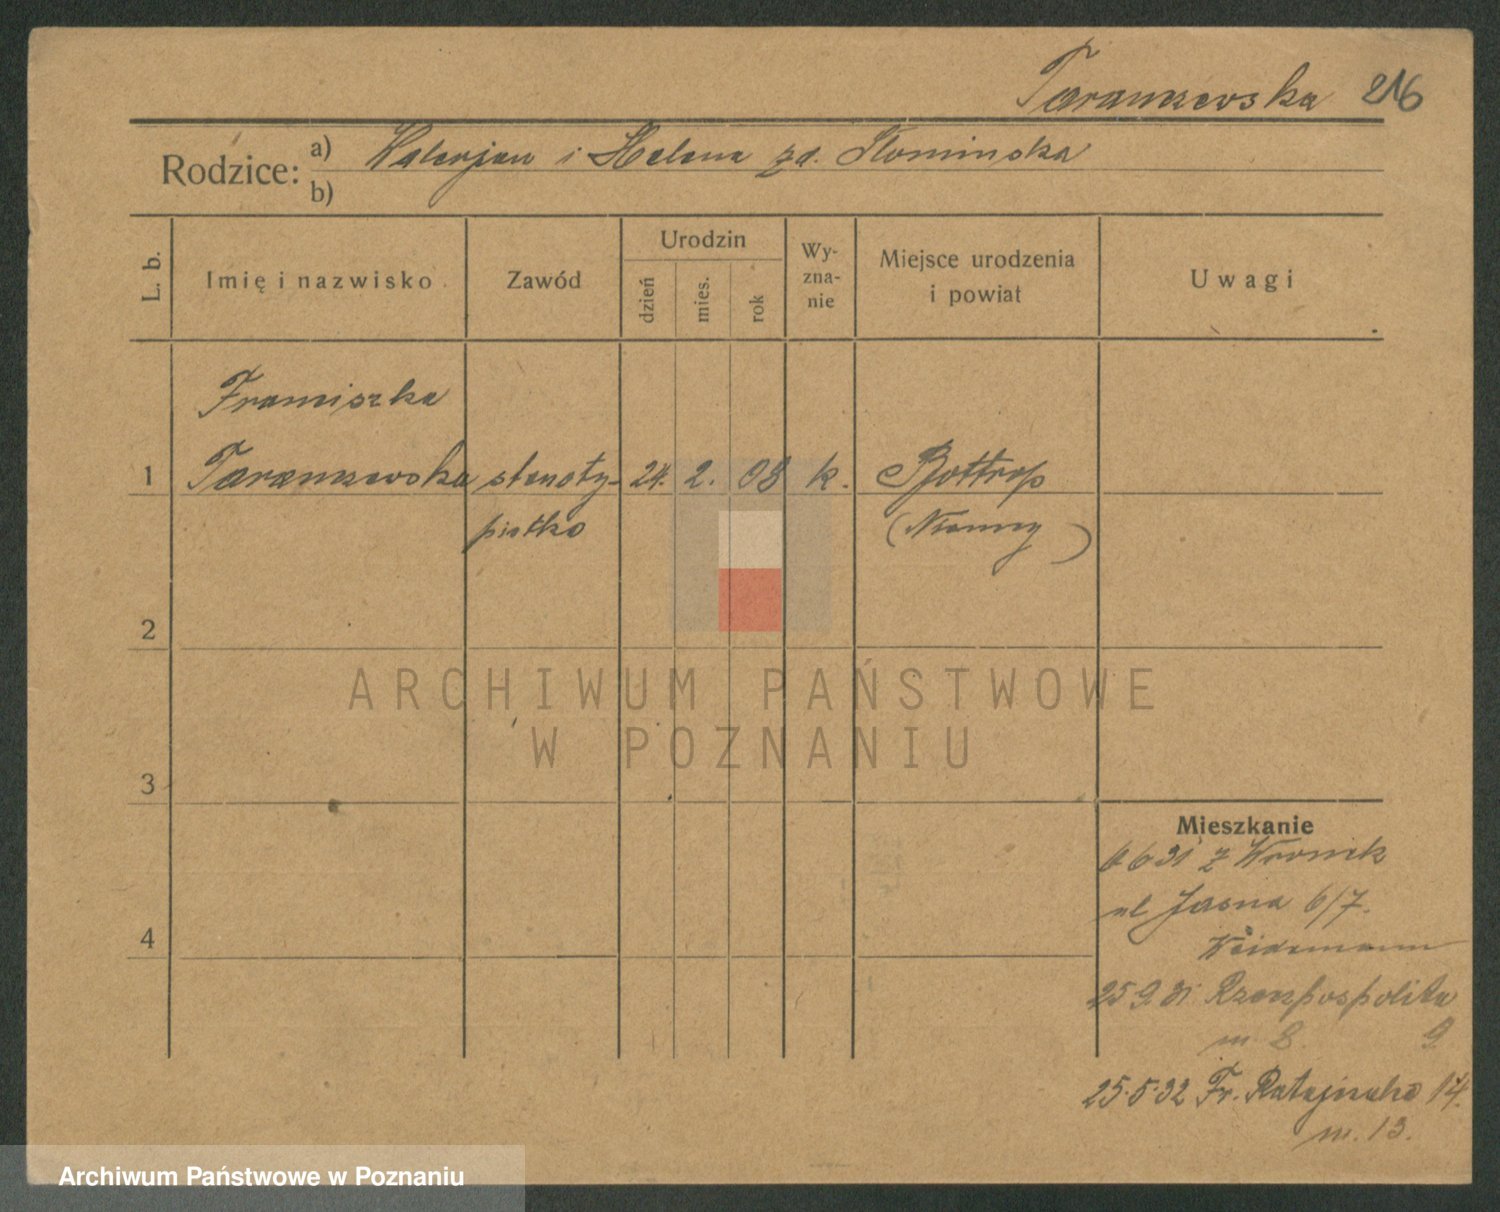 Taranczewska 216
Rodzice: a) Walerjan i Helena zd. Słominska
b)
L. b.
Imię i nazwisko
Zawód
Urodzin
dzień
mies.
rok
Wy-
zna-
nie
Miejsce urodzenia
i powiat
Uwagi
Franciszka
1 Taranczewska stenoty- 24. 2. 08 k. Bottrop
pistka (Niemcy)
2
ARCHIWUM PAŃSTWOWE
W POZNANIU
3
Mieszkanie
6 6 31 z Wronek
ul Jasna 6/7.
4
Weidemann
25 9. 31 Rzeczpospolita
m 8. 9
25.5.32 Fr. Ratajczaka 14.
m. 13.
Archiwum Państwowe w Poznaniu